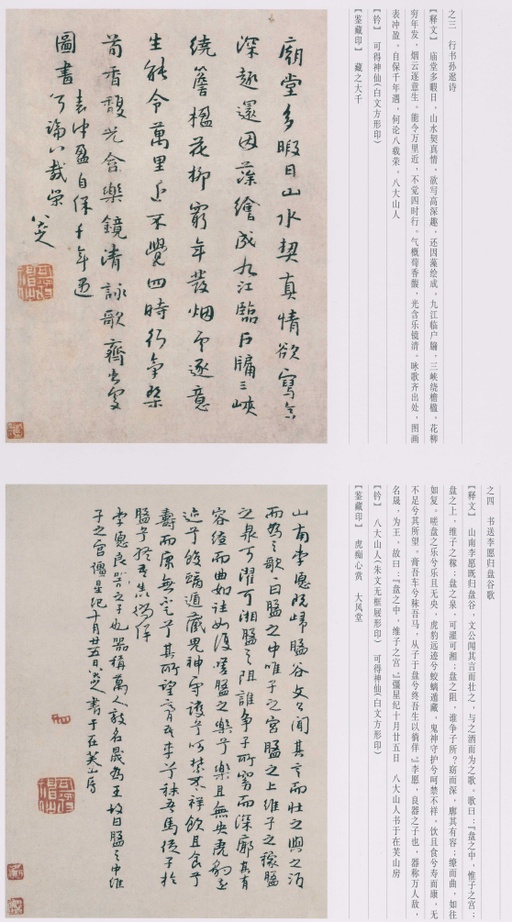 之三　行书孙逖诗
【释文】 庙堂多暇日，山水契真情，欲写高深趣，还因藻绘成，九江临户牖，三峡绕檐楹，花柳
穷年发，烟云逐意生，能令万里近，不觉四时行。气概荀香馥，光含乐镜清。咏歌齐出处，图画
表冲盈，自保千年遇，何论八载荣，八大山人
【钤】 可得神仙(白文方形印)
【鉴藏印】 藏之大千
廟堂多暇日山水契真情欲寫高
深趣還因藻繪成九江臨戶牖三峽
繞簷楹花柳窮年發烟雲逐意
生能令萬里近不覺四時行氣槩
荀香馥光含樂鏡清詠歌齊出處
圖畫
表冲盈自保千年遇
何論八載榮
八大山人
之四　书送李愿归盘谷歌
【释文】 山南李愿既归盘谷，文公闻其言而壮之，与之酒而为之歌。歌曰：『盘之中，惟子之宫；
盘之上，维子之稼；盘之泉，可濯可湘；盘之阻，谁争子所？窈而深，廓其有容；缭而曲，如往
如复。嗟盘之乐兮乐且无央，虎豹远迹兮蛟螭遁藏，鬼神守护兮呵禁不祥。饮且食兮寿而康，无
不足兮其所望，膏吾车兮秣吾马，从子于盘兮终吾生以徜徉。』李愿，良器之子也，器称万人敌，
名晟，为王，故曰：『盘之中，维子之宫。』彊星纪十月廿五日　八大山人书于在芙山房
【钤】 八大山人(朱文无框屐形印)　可得神仙(白文方形印)
【鉴藏印】 虎痴心赏　大风堂
山南李愿既歸盤谷文公聞其言而壯之與之酒
而爲之歌曰盤之中唯子之宮盤之上維子之稼盤
之泉可濯可湘盤之阻誰爭子所窈而深廓其有
容繚而曲如往如復嗟盤之樂兮樂且無央虎豹遠
迹兮蛟螭遁藏鬼神守護兮呵禁不祥飲且食兮
壽而康無不足兮其所望膏吾車兮秣吾馬從子於
盤兮終吾生以徜徉
李愿良器之子也器稱萬人敵名晟為王故曰盤之中維
子之宮彊星紀十月廿五日八大山人書于在芙山房